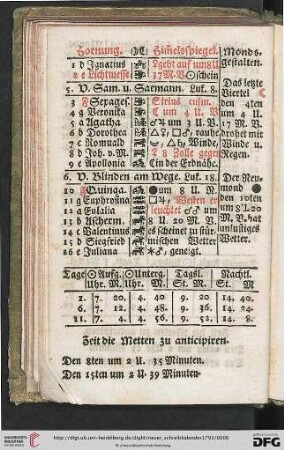 Hornung. Himelsspiegel. Monds-
1 d Ignatius Lgeht auf um 8 U gestalten.
2 e Lichtmesse 37 M. V ☉ schein
5. V. Sam. u. Saemann. Luk. 8. Das letzte
3 Sexages. Sirius culm. Viertel
4 g Veronika um 4 U. V den 4ten
5 a Agatha um 4 U.
6 b Dorothea △♃, □♂, rauhe 17 M. V.
7 c Romuald △♄ Winde, drohet mit
8 d Joh. v. M. 8 Zolle gegen Winde u.
9 e Apollonia in der Erdnähe. Regen.
6. V. Blinden am Wege. Luk. 18. Der Neu-
10 Quinqa. um 8 U. N. mond
11 g Euphrosina □♃, Westen er den 10ten
12 a Eulalia leuchtet ♂ um um 2 U. 20
13 b Ascherm. 8 U. 20 M. V. M. V. hat
14 c Valentinus es scheinet zu stür- unlustiges
15 d Siegfried mischen Wetter Wetter.
16 e Juliana geneigt.
Tage ☉ Aufg. ☉ Unterg. Tagsl. Nachtl.
Uhr. M. Uhr. M. St. M. St. M.
1. 7. 20. 4. 40 9. 20 14. 40.
6. 7. 12. 4. 48. 9. 36 14. 24.
11. 7. 4. 4. 56. 9. 52. 14. 8.
Zeit die Metten zu anticipiren.
Den 8ten um 2 U. 35 Minuten.
Den 15ten um 2 U. 39 Minuten.
http://digi.ub.uni-heidelberg.de/diglit/neuer_schreibkalender1793/0006
© Universitätsbibliothek Heidelberg
gefördert durch die
DFG